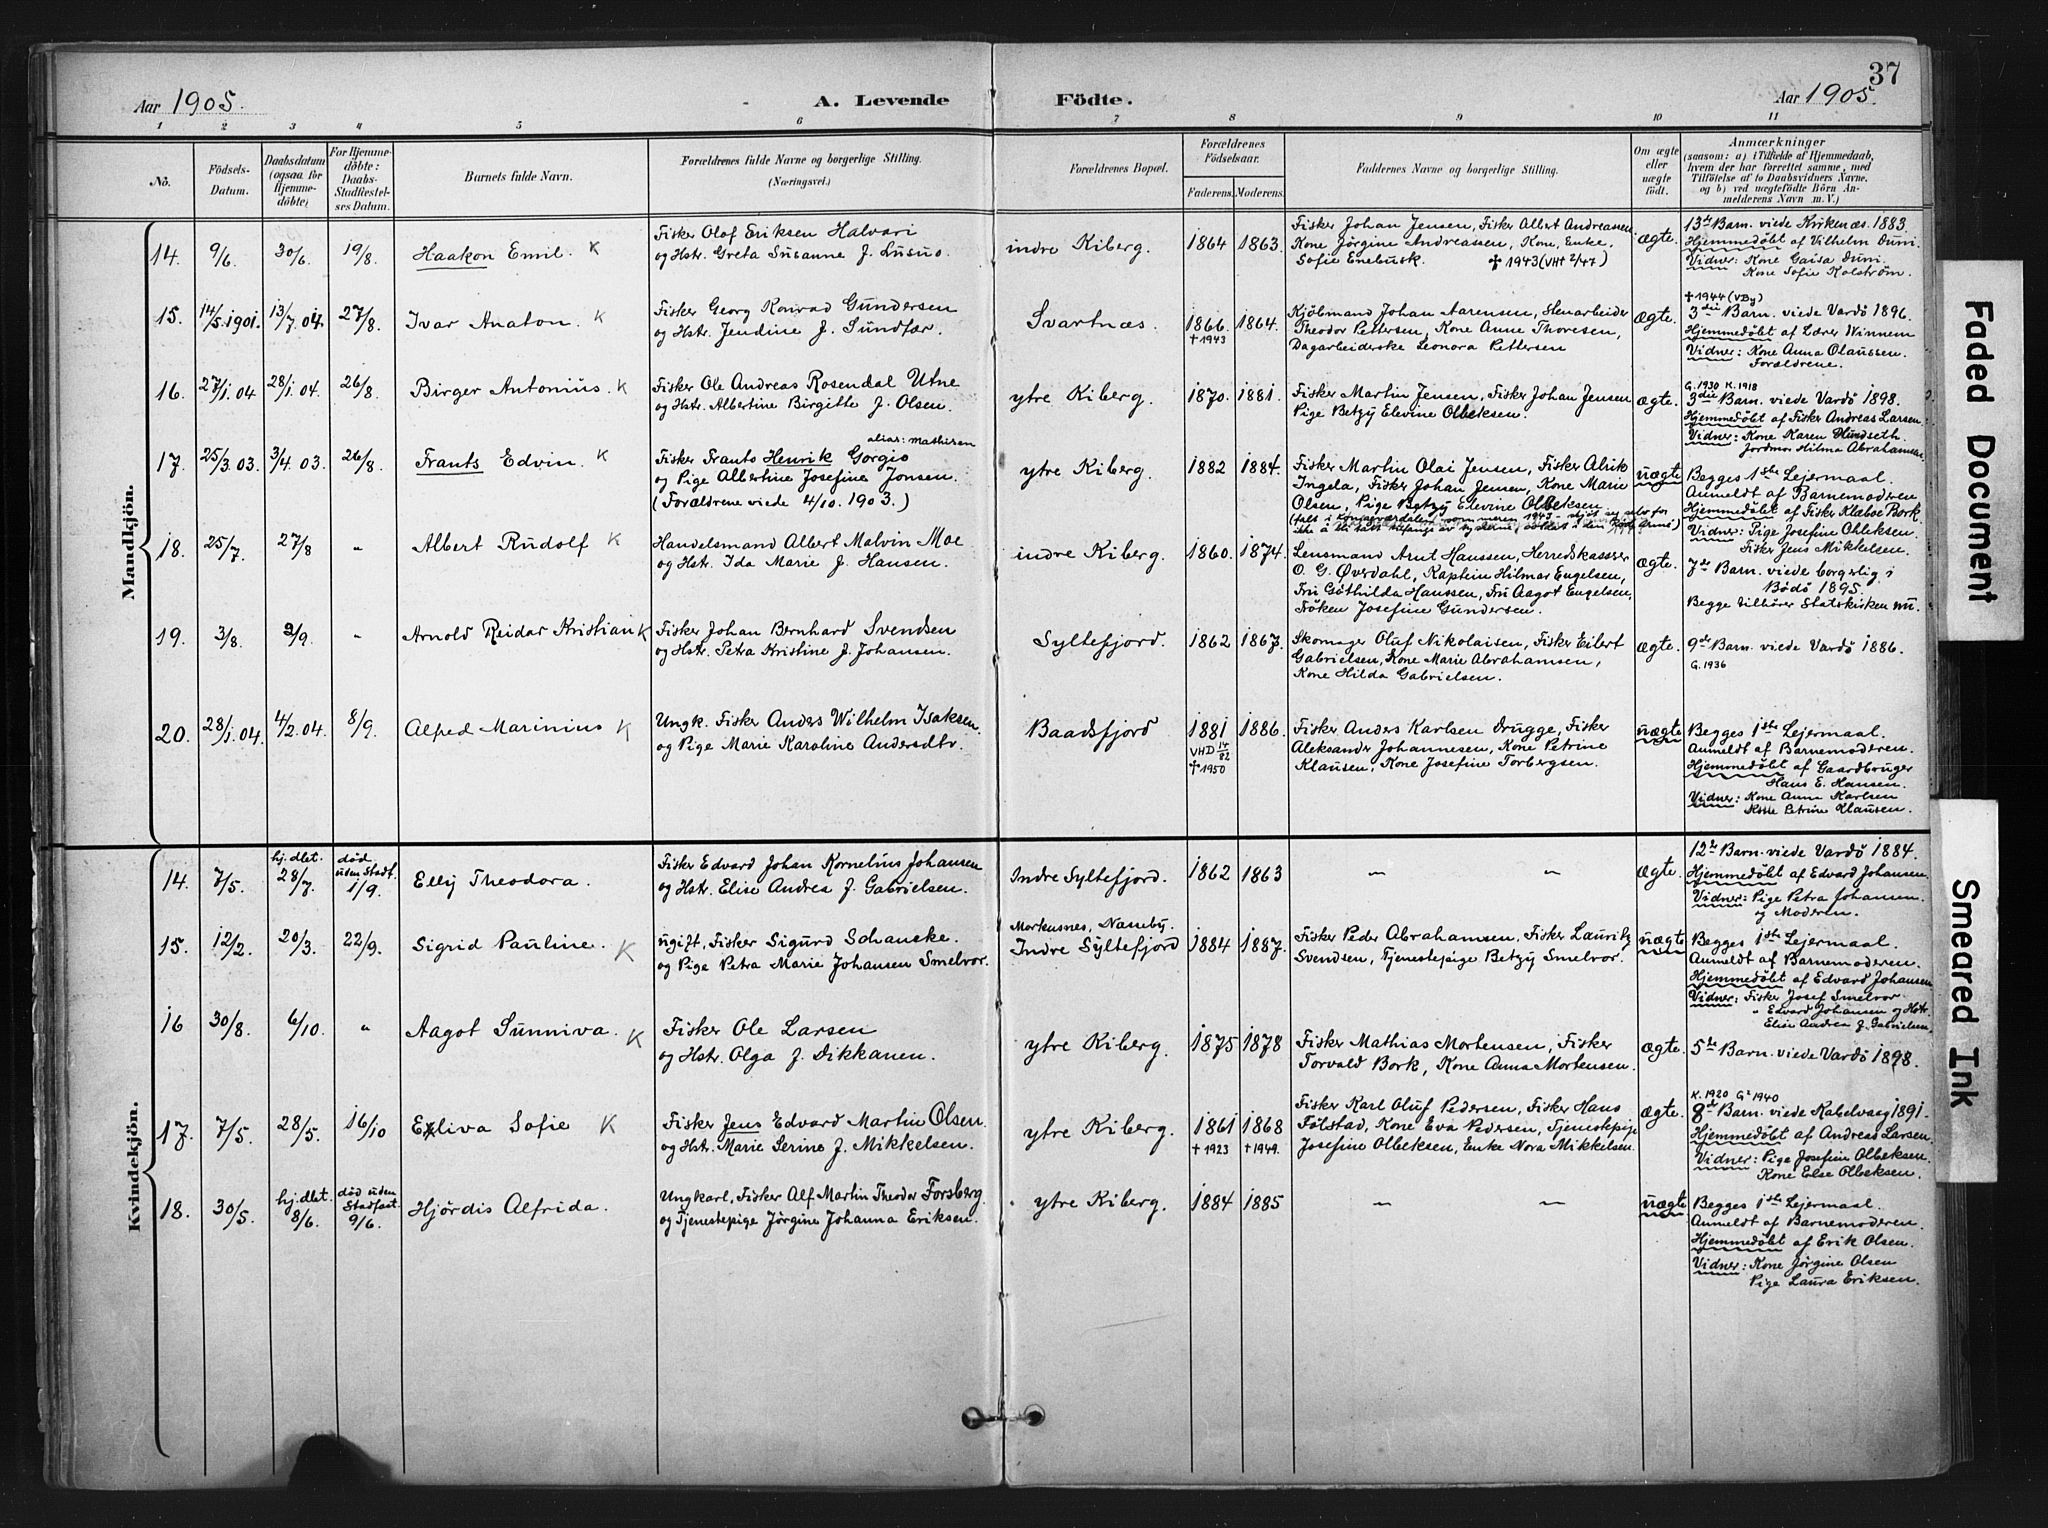 37
Aar 1905.
A. Levende Födte.
Aar 1905.
1 2 3 4 5 6 7 8 9 10 11
No.
Födsels-Datum.
Daabsdatum (ogsaa for Hjemme-döbte)
For Hjemme-döbte: Daabs-Stadfæstel-ses Datum.
Barnets fulde Navn.
Forældrenes fulde Navne og borgerlige Stilling. (Næringsvei.)
Forældrenes Bopæl.
Forældrenes Födselsaar.
Faderens. Moderens.
Faddernes Navne og borgerlige Stilling.
Om ægte eller uægte födt.
Anmærkninger
(saasom: a) i Tilfælde af Hjemmedaab, hvem der har forrettet samme, med Tilföielse af to Daabsvidners Navne. og b) ved uægtefödte Börn An-melderens Navn m. V.)
Mandkjön.
14. 9/6. 30/6. 19/8. Haakon Emil. K
Fisker Olof Eriksen Halvari
og Hstr. Greta Susanne f. Lusuo.
indre Kiberg. 1864 1863.
Fisker Johan Jensen, Fisker Albert Andreassen
Kone Jörgine Andreassen, Kone, Enke,
Sofie Enebusk. † 1943 (VHt 2/47)
ægte.
13de Barn. viede Kirkenæs. 1883.
Hjemmedøbt af Vilhelm Duni.
Vidner: Kone Gaisa Duni.
Kone Sofie Kolström.
15. 14/5.1901. 13/7.04. 27/8. Ivar Anaton. K
Fisker Georg Konrad Gundersen
og Hstr. Jendine f. Sundfær.
Svartnæs. 1866 † 1943 1864.
Kjöbmand Johan Aarensen, Stenarbeider
Theodor Pettersen, Kone Anna Thoresen,
Dagarbeiderske Leonora Pettersen
ægte.
† 1944 (VBy)
3die Barn. viede Vardö 1896.
Hjemmedøbt af Lærer Winnem
Vidner: Kone Anna Olaussen.
Forældrene.
16. 27/1.04 28/1.04. 26/8. Birger Antonius. K
Fisker Ole Andreas Rosendal Utne
og Hstr. Albertine Birgitte f. Olsen.
ytre Kiberg. 1870. 1881.
Fisker Martin Jensen, Fisker Johan Jensen
Pige Betzy Elevine Olbeksen.
ægte.
G. 1930 K. 1918
3die Barn. viede Vardö 1898.
Hjemmedøbt af Fisker Andreas Larsen
Vidner: Kone Karen Hundseth.
Jordmor Hilma Abrahamsen.
17. 25/3.03. 3/4.03. 26/8. Frants Edvin. K
alias: Mathisen
Fisker Frants Henrik Gorgio
og Pige Albertine Josefine Jonsen.
(Forældrene viede 4/10.1903.)
ytre Kiberg. 1882 1884.
Fisker Martin Olai Jensen, Fisker Alrik
Ingela, Fisker Johan Jensen, Kone Marie
Olsen, Pige Betzy Elevine Olbeksen
uægte
Begges 1ste Lejermaal.
Anmeldt af Barnemoderen
Hjemmedøbt af Fisker Klæboe Bork
Vidner: Pige Josefine Ohleksen.
Fisker Jens Mikkelsen.
18. 25/7. 27/8 " Albert Rudolf K
Handelsmand Albert Malvin Moe
og Hstr. Ida Marie f. Hansen.
indre Kiberg. 1860. 1874.
Lensmand Arnt Hanssen, Herredskasserer
O. G. Øverdahl, Kaptein Hilmar Engelsen,
Fru Göthilda Hanssen, Fru Aagot Engelsen,
Fröken Josefine Gundersen.
ægte.
7de Barn. viede borgerlig i
Bodö 1895.
Begge tilhörer Statskirken nu.
19. 3/8. 3/9. " Arnold Reidar Kristian K
Fisker Johan Bernhard Svendsen
og Hstr. Petra Kristine f. Johansen.
Syltefjord. 1862 1867.
Skomager Oluf Nikolaisen, Fisker Eilert
Gabrielsen, Kone Marie Abrahamsen,
Kone Hilda Gabrielsen.
ægte.
9de Barn. viede Vardö 1886.
G. 1936
20. 28/1.04. 4/2.04 8/9. Alfred Marinius K
Ungk. Fisker Anders Wilhelm Isaksen
og Pige Marie Karoline Andersdtr.
Baadsfjord. 1881 VHD 14/82 † 1950 1886.
Fisker Anders Karlsen Drugge, Fisker
Aleksander Johannesen, Kone Petrine
Klausen, Kone Josefine Torbergsen.
uægte
Begges 1ste Lejermaal.
Anmeldt af Barnemoderen.
Hjemmedøbt af Gaardbruger
Hans E. Hansen.
Vidner: Kone Anna Karlsen
Kone Petrine Klausen.
Kvindekjön.
14. 7/5. hj. dbt. 28/7. död uden Stadf. 1/9. Elly Theodora.
Fisker Edvard Johan Kornelius Johansen
og Hstr. Elise Andrea f. Gabrielsen.
Indre Syltefjord. 1862 1863 — —
Ægte.
12te Barn. viede Vardö 1884.
Hjemmedøbt af Edvard Johansen.
Vidner: Pige Petra Johansen.
og Moderen.
15. 12/2. 20/3. 22/9. Sigrid Pauline. K
ugift, Fisker Sigurd Schanske.
og Pige Petra Marie Johansen Smelvor.
Morkusnes, Nasseby.
Indre Syltefjord 1884 1887.
Fisker Peder Abrahamsen, Fisker Lauritz
Svendsen, Tjenestepige Betzy Smelvor.
uægte
Begges 1ste Lejermaal.
Anmeldt af Barnemoderen.
Hjemmedøbt af Edvard Johansen
Vidner: Fisker Josef Smelvor.
" Edvard Johansen og Hstr.
Elise Andrea f. Gabrielsen.
16 30/8. 6/10. " Aagot Sunniva. K
Fisker Ole Larsen
og Hstr. Olga f. Dikkanen.
ytre Kiberg. 1875 1878
Fisker Mathias Mortensen, Fisker
Torvald Bork, Kone Anna Mortensen.
ægte.
5te Barn. viede Vardö 1898.
17. 7/5. 28/5. 16/10 Exliva Sofie K
Fisker Jens Edvard Martin Olsen
og Hstr. Marie Serine f. Mikkelsen.
ytre Kiberg. 1861 † 1923 1868 † 1949.
Fisker Karl Oluf Pedersen, Fisker Hans
Fölstad, Kone Eva Pedersen, Tjenestepige
Josefine Olbeksen, Enke Nora Mikkelsen.
ægte.
K. 1920 G² 1940
8de Barn. viede Kabelvaag 1891.
Hjemmedøbt af Andreas Larsen.
Vidner: Pige Josefine Olbeksen.
Kone Else Olbeksen.
18. 30/5. hj. dbt. 8/6. död uden Stadfæst. 9/6. Hjördis Alfrida.
Ungkarl, Fisker Alf Martin Theodor Forsberg
og Tjenestepige Jörgine Johanna Eriksen.
ytre Kiberg. 1884 1885 — —
uægte.
Begges 1ste Lejermaal.
Anmeldt af Barnemoderen.
Hjemmedøbt af Erik Olsen.
Vidner: Kone Jörgine Olsen
Pige Laura Eriksen.
Faded Document
Smeared Ink